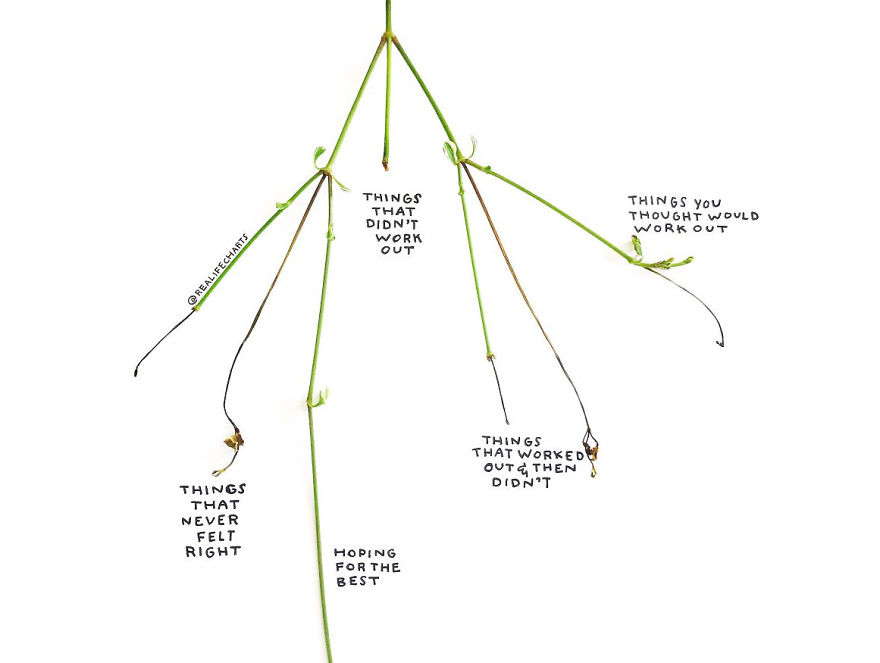 THINGS
THAT
DIDN'T
WORK
OUT
THINGS YOU
THOUGHT WOULD
WORK OUT
@REALIFECHARTS
THINGS
THAT WORKED
OUT & THEN
DIDN'T
THINGS
THAT
NEVER
FELT
RIGHT
HOPING
FOR THE
BEST